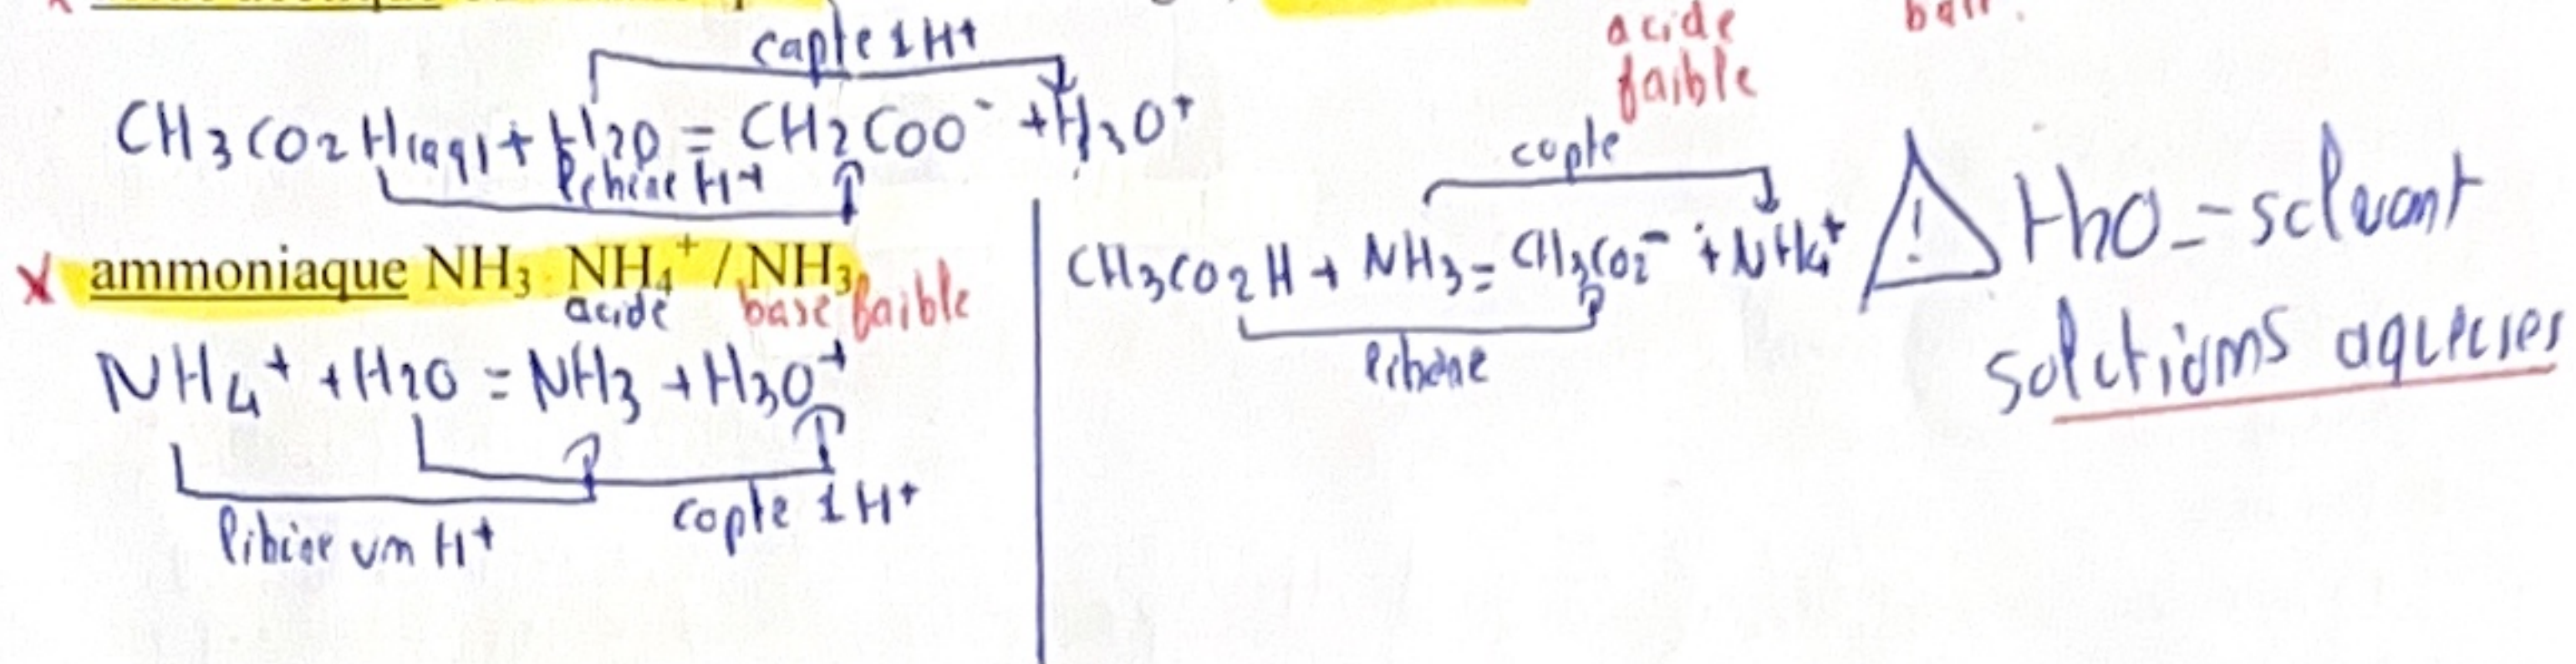 capte 1H+
CH3CO2H(aq) + H2O = CH2COO- + H3O+
libère H+
ammoniaque NH3 NH4+ / NH3
acide base faible
NH4+ + H2O = NH3 + H3O+
libère un H+ capte 1H+
acide
faible
capte
CH3CO2H + NH3 = CH3CO2- + NH4+
libère
! H2O = solvant
solutions aqueuses